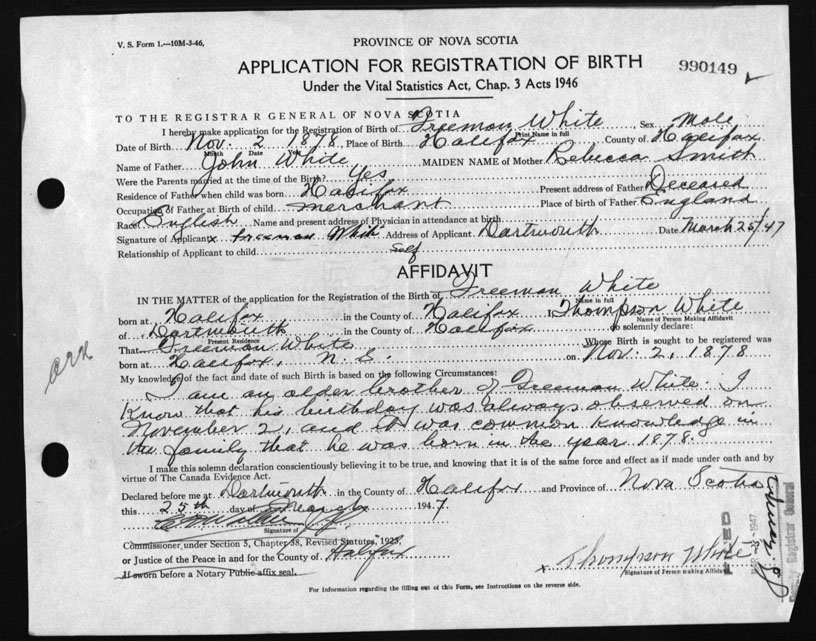 V. S. Form 1.—10M-3-46,
PROVINCE OF NOVA SCOTIA
APPLICATION FOR REGISTRATION OF BIRTH
990149
Under the Vital Statistics Act, Chap. 3 Acts 1946
TO THE REGISTRAR GENERAL OF NOVA SCOTIA
I hereby make application for the Registration of Birth of Freeman White Sex Male
Print Name in full
Date of Birth Nov. 2 1878 Place of Birth Halifax County of Halifax
Month Date Year
Name of Father John White MAIDEN NAME of Mother Rebecca Smith
Were the Parents married at the time of the Birth? Yes
Residence of Father when child was born Halifax Present address of Father Deceased
Occupation of Father at Birth of child merchant Place of birth of Father England
Race English Name and present address of Physician in attendance at birth
Signature of Applicant x Freeman White Address of Applicant Dartmouth Date March 25/47
Relationship of Applicant to child Self
AFFIDAVIT
IN THE MATTER of the application for the Registration of the Birth of Freeman White
Name in full
born at Halifax in the County of Halifax I, Thompson White
Name of Person Making Affidavit
of Dartmouth in the County of Halifax do solemnly declare:
Present Residence
That Freeman White Whose Birth is sought to be registered was
born at Halifax, N. S. on Nov. 2, 1878
My knowledge of the fact and date of such Birth is based on the following Circumstances:
I am an older brother of Freeman White. I
know that his birthday was always observed on
November 2, and it was common knowledge in
the family that he was born in the year 1878.
I make this solemn declaration conscientiously believing it to be true, and knowing that it is of the same force and effect as if made under oath and by
virtue of The Canada Evidence Act.
Declared before me at Dartmouth in the County of Halifax and Province of Nova Scotia
this 25th day of March 1947
Signature of
Commissioner under Section 5, Chapter 38, Revised Statutes, 1923,
or Justice of the Peace in and for the County of Halifax
If sworn before a Notary Public affix seal.
x Thompson White
Signature of Person making Affidavit
For Information regarding the filling out of this Form, see Instructions on the reverse side.
FILED
1947
Registrar General